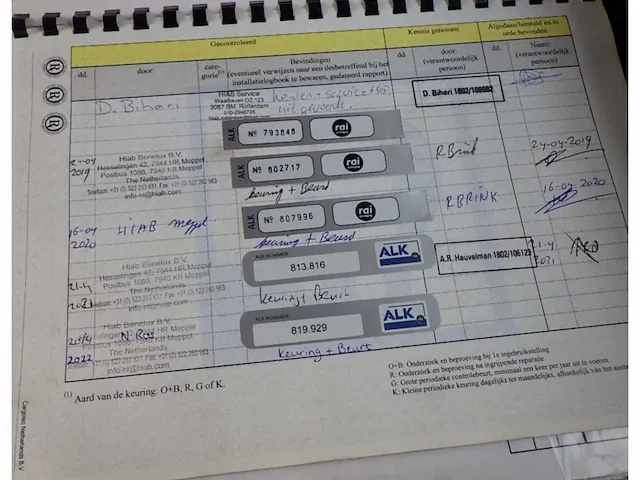 Gecontroleerd
Kennis genomen
Afgedaan/hersteld en in orde bevonden
dd.
door:
cate-
gorie(1)
Bevindingen
(eventueel verwijzen naar een desbetreffend bij het
installatielogboek te bewaren, gedateerd rapport)
dd.
door:
(verantwoordelijk
persoon)
dd.
Naam:
(verantwoordelijk
persoon)
D. Bihari
HIAB Service
Waalhaven DZ 123
3087 BM Rotterdam
D. Bihari 1802/106082
ALK
Nº 793848
rai
24-04
2019
Hiab Benelux B.V.
Hesselingen 42, 7944 HR Meppel
Postbus 1086, 7940 KB Meppel
The Netherlands
info-nl@hiab.com
ALK
Nº 802717
rai
keuring + Beurt
24-04-2019
16-04
2020
HIAB meppel
ALK
Nº 807996
rai
keuring + Beurt
RBRINK
16-04-2020
21-4
Hiab Benelux B.V.
Hesselingen 42, 7944 HR Meppel
Postbus 1086, 7940 KB Meppel
The Netherlands
info-nl@hiab.com
ALK NUMMER
813.816
ALK
keuring + Beurt
A.R. Heuvelman 1802/106123
21-4
2021
2022
Hiab Benelux B.V.
N Ros
Postbus 1086, 7940 KB Meppel
The Netherlands
info-nl@hiab.com
ALK NUMMER
819.929
ALK
keuring + Beurt
(1) Aard van de keuring: O+B, R, G of K.
O+B: Onderzoek en beproeving bij 1e ingebruikstelling
R: Onderzoek en beproeving na ingrijpende reparatie
G: Grote periodieke controlebeurt, minimaal een keer per jaar uit te voeren
K: Kleine periodieke keuring dagelijks tot maandelijks, afhankelijk van het aanta
Cargotec Netherlands B.V.
R
R
R